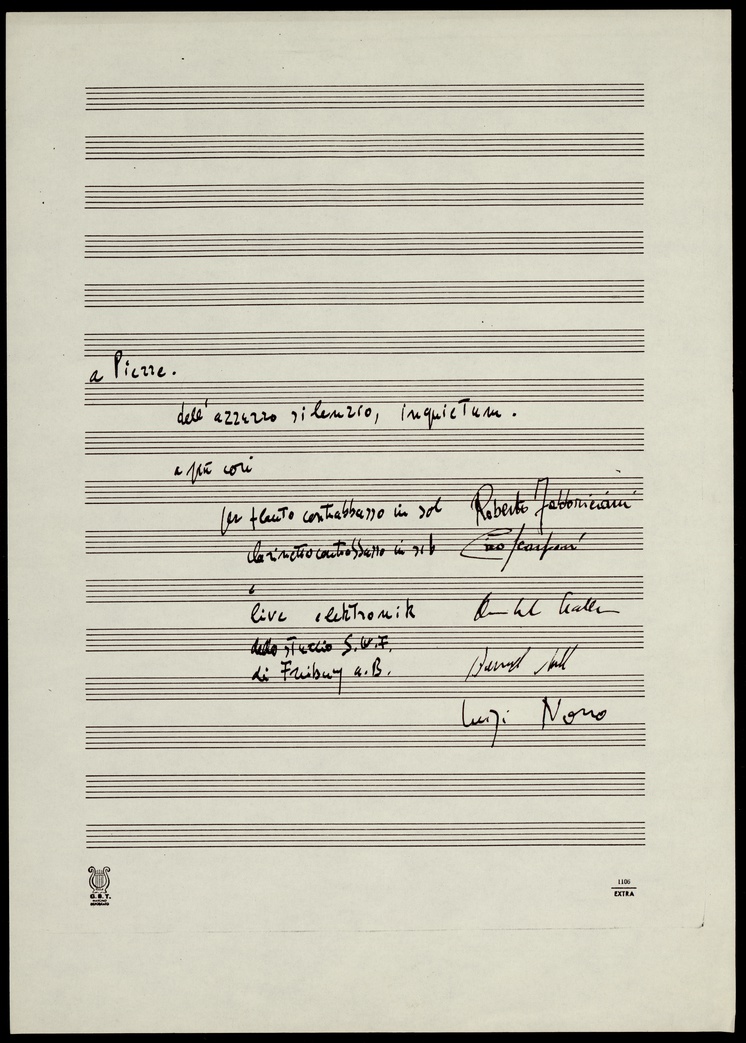 a Pierre.
dell' azzurro silenzio, inquietum.
a più cori
per flauto contrabbasso in sol Roberto Fabbriciani
clarinetto contrabbasso in sib Ciro Scarponi
e
live elektronik
dello studio S.W.F.
di Freiburg a.B.
Luigi Nono
G. S. T.
1106
EXTRA